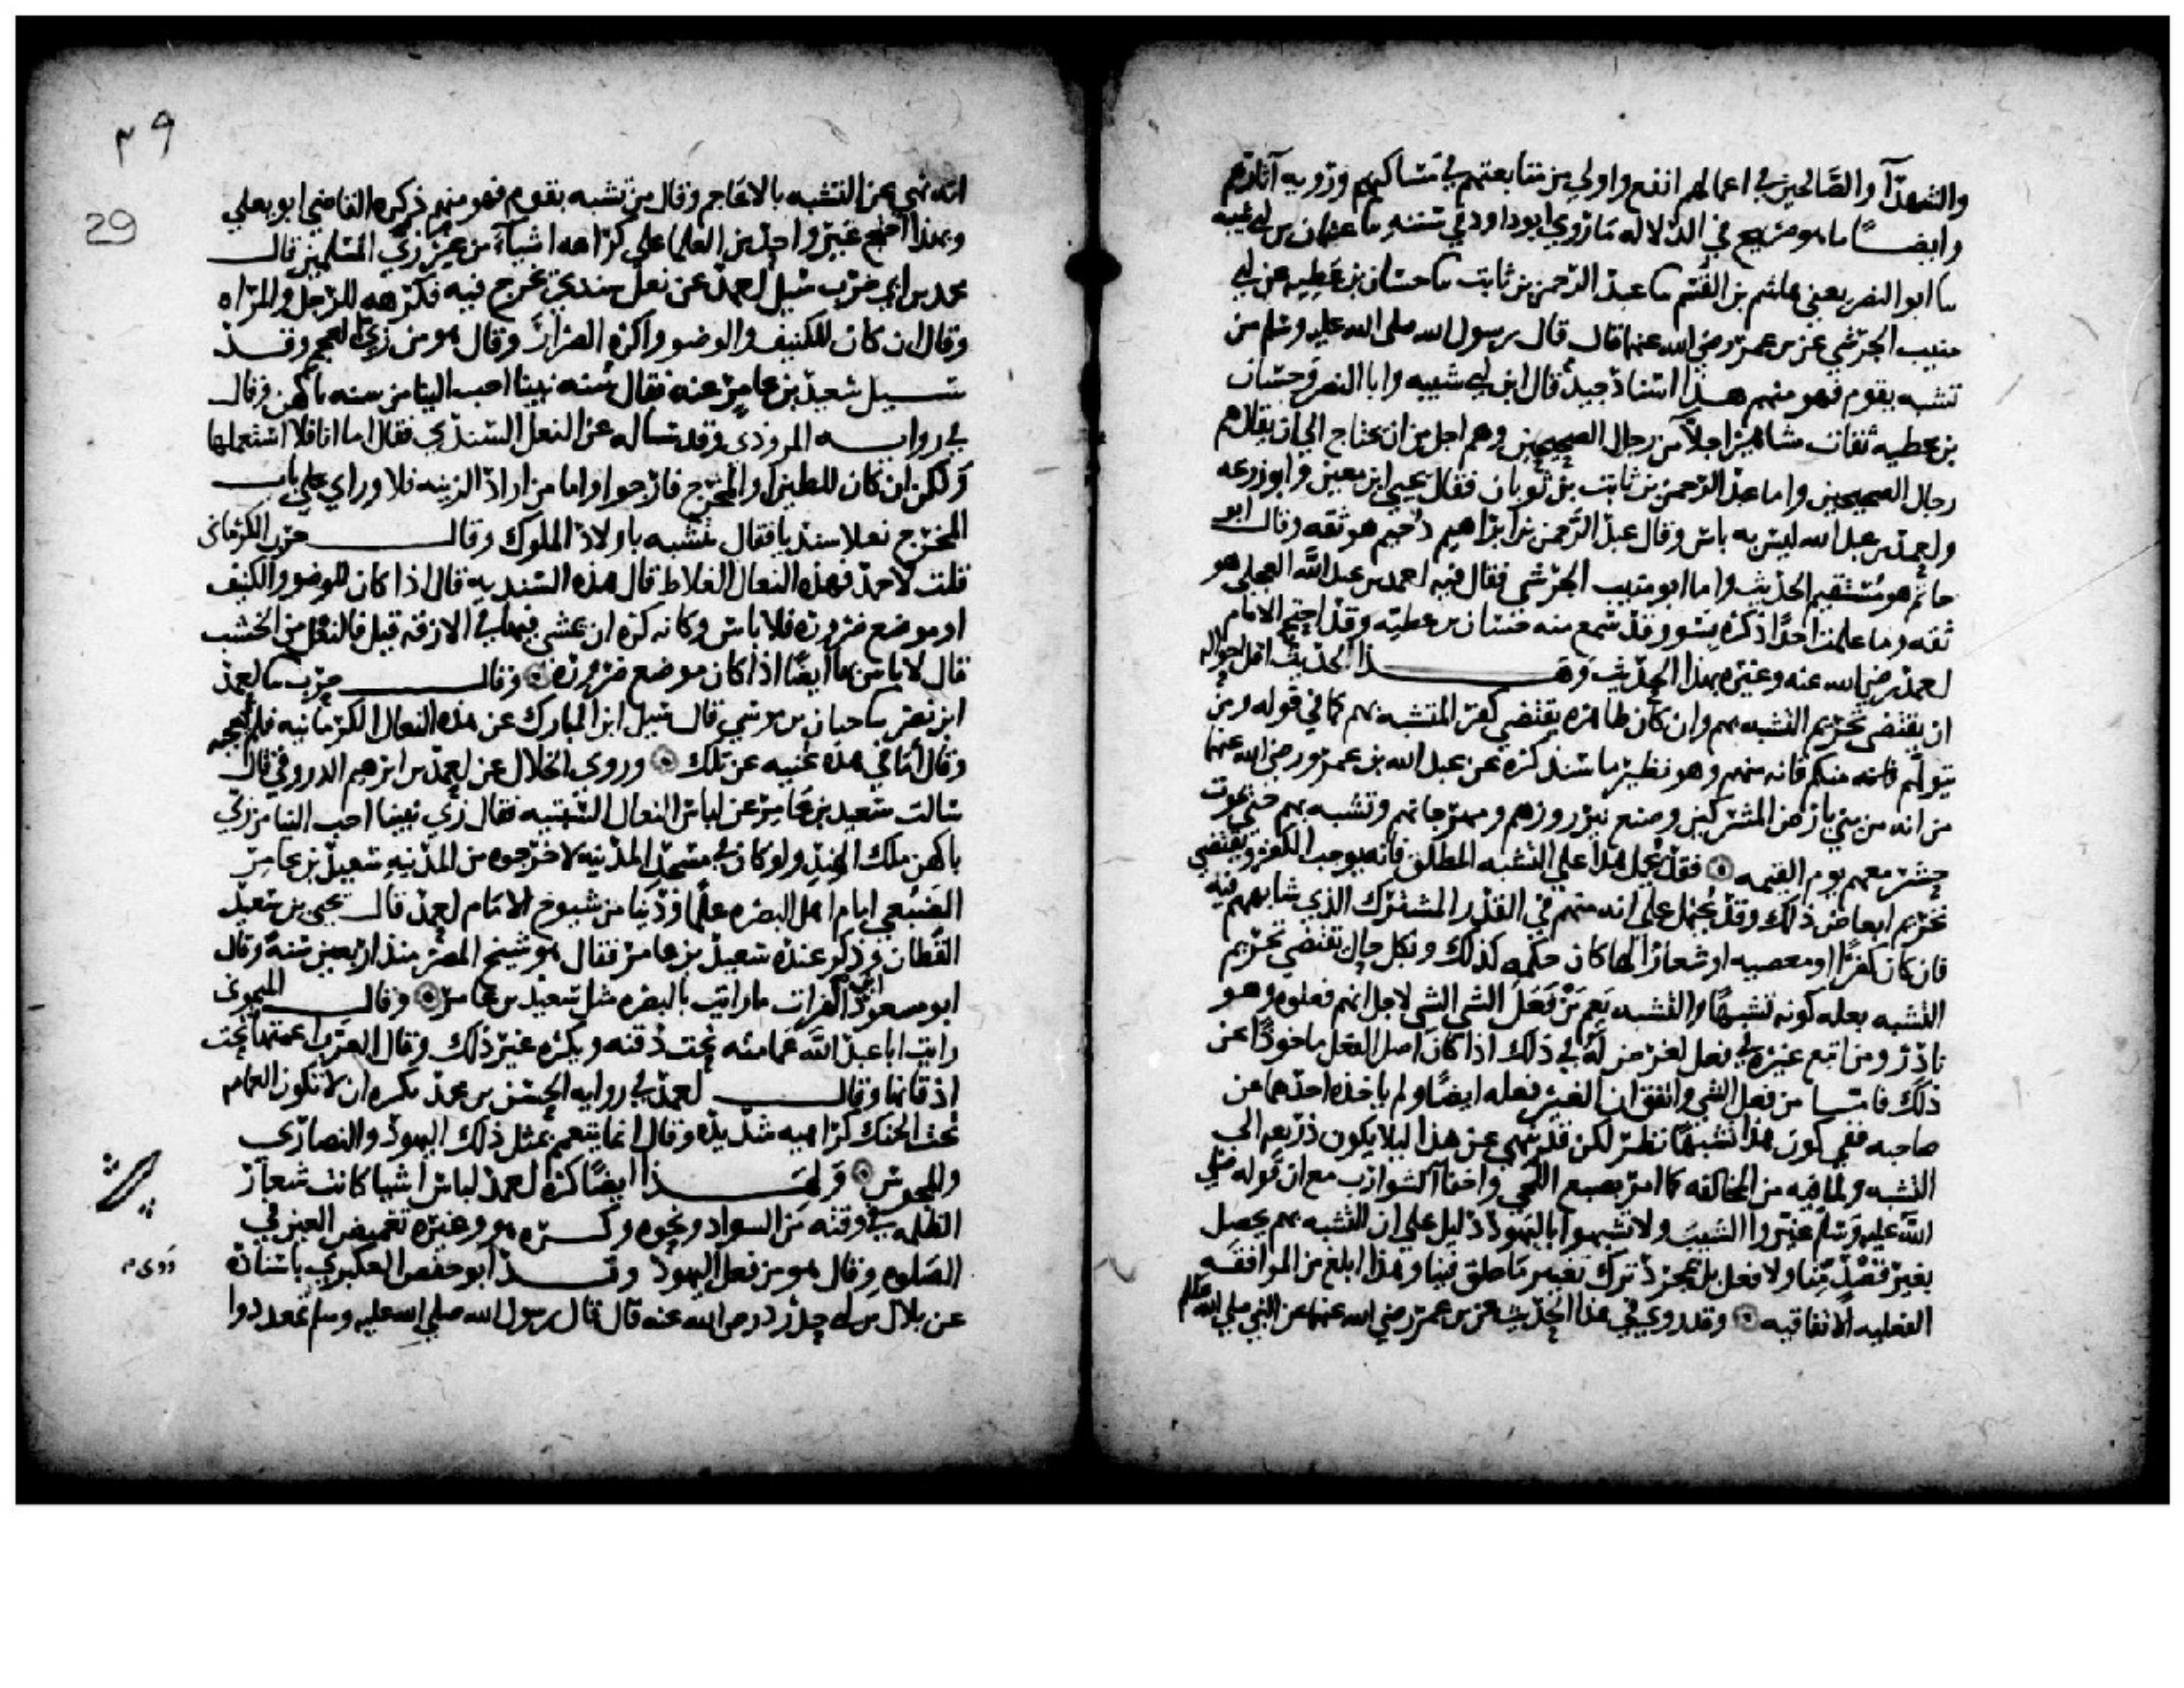 والشهدآ والصالحين في اعمالهم انفع واولي من متابعتهم في مساكنهم وروية آثارهم
وايضـــا ما هو صريح في الدلاله ما روي ابو داود في سننه ما عثمان بن ابي شيبه
سا ابو النضر يعني هاشم بن القسم سا عبد الرحمن بن ثابت سا حسان بن عطيه عن ابي
منيب الجرشي عن بن عمر رضي الله عنهما قال قال رسول الله صلى الله عليه وسلم من
تشبه بقوم فهو منهم هـــذا اسناد جيد قال ابن ابي شيبه وابا النضر وحسان
بن عطيه ثقات مشاهير اجلا من رجال الصحيحين وهم اجل من ان يحتاج الي ان يقال هم
رجال الصحيحين واما عبد الرحمن بن ثابت بن ثوبان فقال يحيى ابن معين وابو زرعه
واحمد بن عبد الله ليس به باس وقال عبد الرحمن بن ابراهيم دحيم هو ثقه وقال ابو
حاتم هو مستقيم الحديث واما ابو منيب الجرشي فقال فيه احمد بن عبد الله العجلي هو
ثقه وما علمت احدا ذكره بسو وقد سمع منه حسان بن عطيه وقد احتج الامام
احمد رضي الله عنه وغيره بهذا الحديث وهـــــــذا الحديث اقل احواله
ان يقتضي تحريم التشبه بهم وان كان ظاهره يقتضي كفر المتشبه بهم كما في قوله ومن
يتولهم منكم فانه منهم وهو نظير ما سنذكره عن عبد الله بن عمرو رضي الله عنهما
من انه من بني بارض المشركين وصنع نيروزهم ومهرجانهم وتشبه بهم حتى يموت
حشر معهم يوم القيمه فقد يحمل هذا على التشبه المطلق فانه يوجب الكفر ويقتضي
تحريم ابعاض ذلك وقد يحمل على انه منهم في القدر المشترك الذي شابههم فيه
فان كان كفرا او معصيه او شعارا لها كان حكمه كذلك وبكل حال يقتضي تحريم
التشبه بعله كونه تشبها والتشبه يعم من فعل الشي لاجل انهم فعلوه وهو
نادر ومن تبع غيره في فعل لغرض له في ذلك اذا كان اصل الفعل ماخوذا عن
ذلك فاما من فعل الشي واتفق ان الغير فعله ايضا ولم ياخذه احدهما عن
صاحبه ففي كون هذا تشبها نظر لكن قد نهي عن هذا ليلا يكون ذريعه الى
التشبه ولما فيه من المخالفه كما امر بصبغ اللحي واحفآ الشوارب مع ان قوله صلي
الله عليه وسلم غيروا الشيب ولا تشبهوا باليهود دليل علي ان التشبه بهم يحصل
بغير قصد منا ولا فعل بل بمجرد ترك تغيير ما خلق فينا وهذا ابلغ من الموافقه
الفعليه الاتفاقيه وقد روي في هذا الحديث عن بن عمر رضي الله عنهما عن النبي صلي الله عليه وسلم
٢٩
29
انه نهي عن التشبه بالاعاجم وقال من تشبه بقوم فهو منهم ذكره القاضي ابو يعلي
وبهذا احتج غير واحد من العلما علي كراهه اشيآء من غير زي المسلمين قال
محمد بن ابي حرب سيل احمد عن نعل سندي يخرج فيه فكرهه للرجل والمراه
وقال ان كان للكنيف والوضو واكره الصرار وقال هو من زي العجم وقـــد
ســـيل سعيد بن عامر عنه فقال سنه نبينا احب الينا من سنه باكهن وقال
في روايـــه المروذي وقد ساله عن النعل السندي فقال اما انا فلا استعملها
ولكن ان كان للطين او المخرج فارجوا واما من اراد الزينه فلا وراي علي باب
المخرج نعلا سنديا فقال يتشبه باولاد الملوك وقالـــــ حرب الكرماني
قلت لاحمد فهذه النعال الغلاظ قال هذه السنديه قال اذا كان للوضو والكنيف
او موضع ضروره فلا باس وكانه كره ان يمشي فيها في الازقه قيل فالنعل من الخشب
قال لا باس بها ايضا اذا كان موضع ضروره وقالـــــ حرب سا احمد
ابن نصر سا حبان بن موسي قال سيل ابن المبارك عن هذه النعال الكرمانيه فلم تعجبه
وقال اما في هذه غنيه عن تلك وروي الخلال عن احمد بن ابرهيم الدورقي قال
سالت سعيد بن عامر عن لباس النعال السبتيه فقال زي نبينا احب الينا من زي
باكهن ملك الهند ولو كان في مسجد المدينه لاخرجوه من المدينه سعيد بن عامر
الضبعي امام اهل البصره علما ودينا من شيوخ الامام احمد قال يحيي بن سعيد
القطان وذكر عنده سعيد بن عامر فقال هو شيخ المصر منذ اربعين سنه وقال
ابو مسعود ابن الفرات ما رايت بالبصره مثل سعيد بن عامر وقالـــــ الميموني
رايت ابا عبد الله عمامته تحت ذقنه ويكره غير ذلك وقال العرب اعمتها تحت
اذقانها وقالـــــ احمد في روايه الحسن بن محمد يكره ان لا تكون العمامه
تحت الحنك كراهيه شديده وقال انما يتعمم بمثل ذلك اليهود والنصاري
والمجوس ولهـــــذا ايضا كره احمد لباس اشيا كانت شعار
الظلمه في وقته من السواد ونحوه وكـــره هو وغيره تغميض العين في
الصلوه وقال هو من فعل اليهود وقـــد ابو حفص العكبري باسناده
روي
عن بلال بن ابي حدرد رضي الله عنه قال قال رسول الله صلي الله عليه وسلم تمعددوا